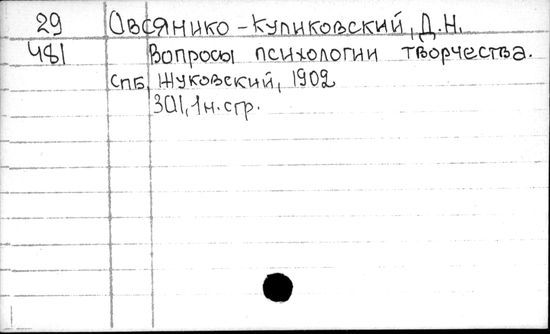 29 Овсянико-Куликовский, Д.Н.
481 Вопросы психологии творчества.
СПБ, Жуковский, 1902
301, 1 н. стр.